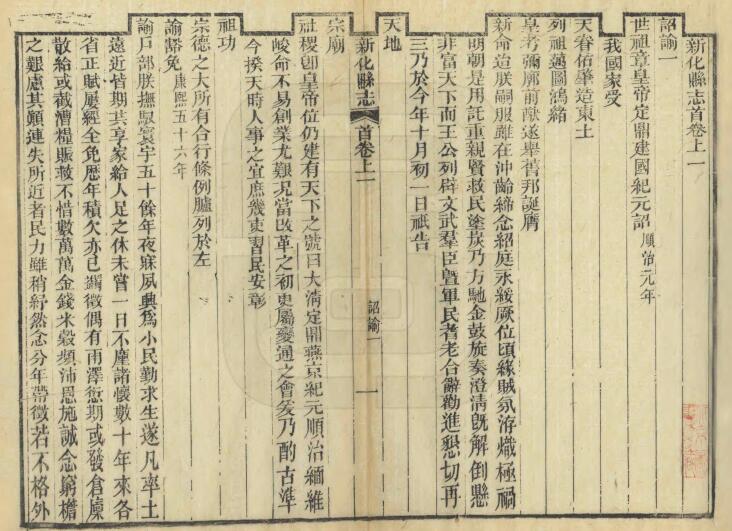 新化縣志首卷上一
詔諭一
世祖章皇帝定鼎建國紀元詔 順治元年
我國家受
天眷佑肇造東土
列祖邁圖鴻緒
皇考彌廓前猷遂舉舊邦誕膺
新命迨朕嗣服雖在沖齡締念紹庭永綏厥位頃緣賊氛洊熾極禍
明朝是用託重親賢救民塗炭乃方馳金鼓旋奏澄清旣解倒懸
非富天下而王公列辟文武羣臣曁軍民耆老合辭勸進懇切再
三乃於今年十月初一日祗告
天地
新化縣志 首卷上一 詔諭一 一
宗廟
社稷卽皇帝位仍建有天下之號曰大淸定鼎燕京紀元順治緬維
峻命不易創業尤艱况當改革之初更屬變通之會爰乃酌古準
今揆天時人事之宜庶幾吏習民安彰
祖功
宗德之大所有合行條例臚列於左
諭豁免 康熙五十六年
諭戸部朕撫馭寰宇五十餘年夜寐夙興爲小民勤求生遂凡率土
遠近皆期共享家給人足之休未嘗一日不廑諸懷數十年來各
省正賦屢經全免歷年積欠亦已蠲徵偶有雨澤愆期或發倉廩
散給或截漕糧賑救不惜數萬萬金錢米穀頻沛恩施誠念窮檐
之艱慮其顚連失所近者民力雖稍紓然念分年帶徵若不格外